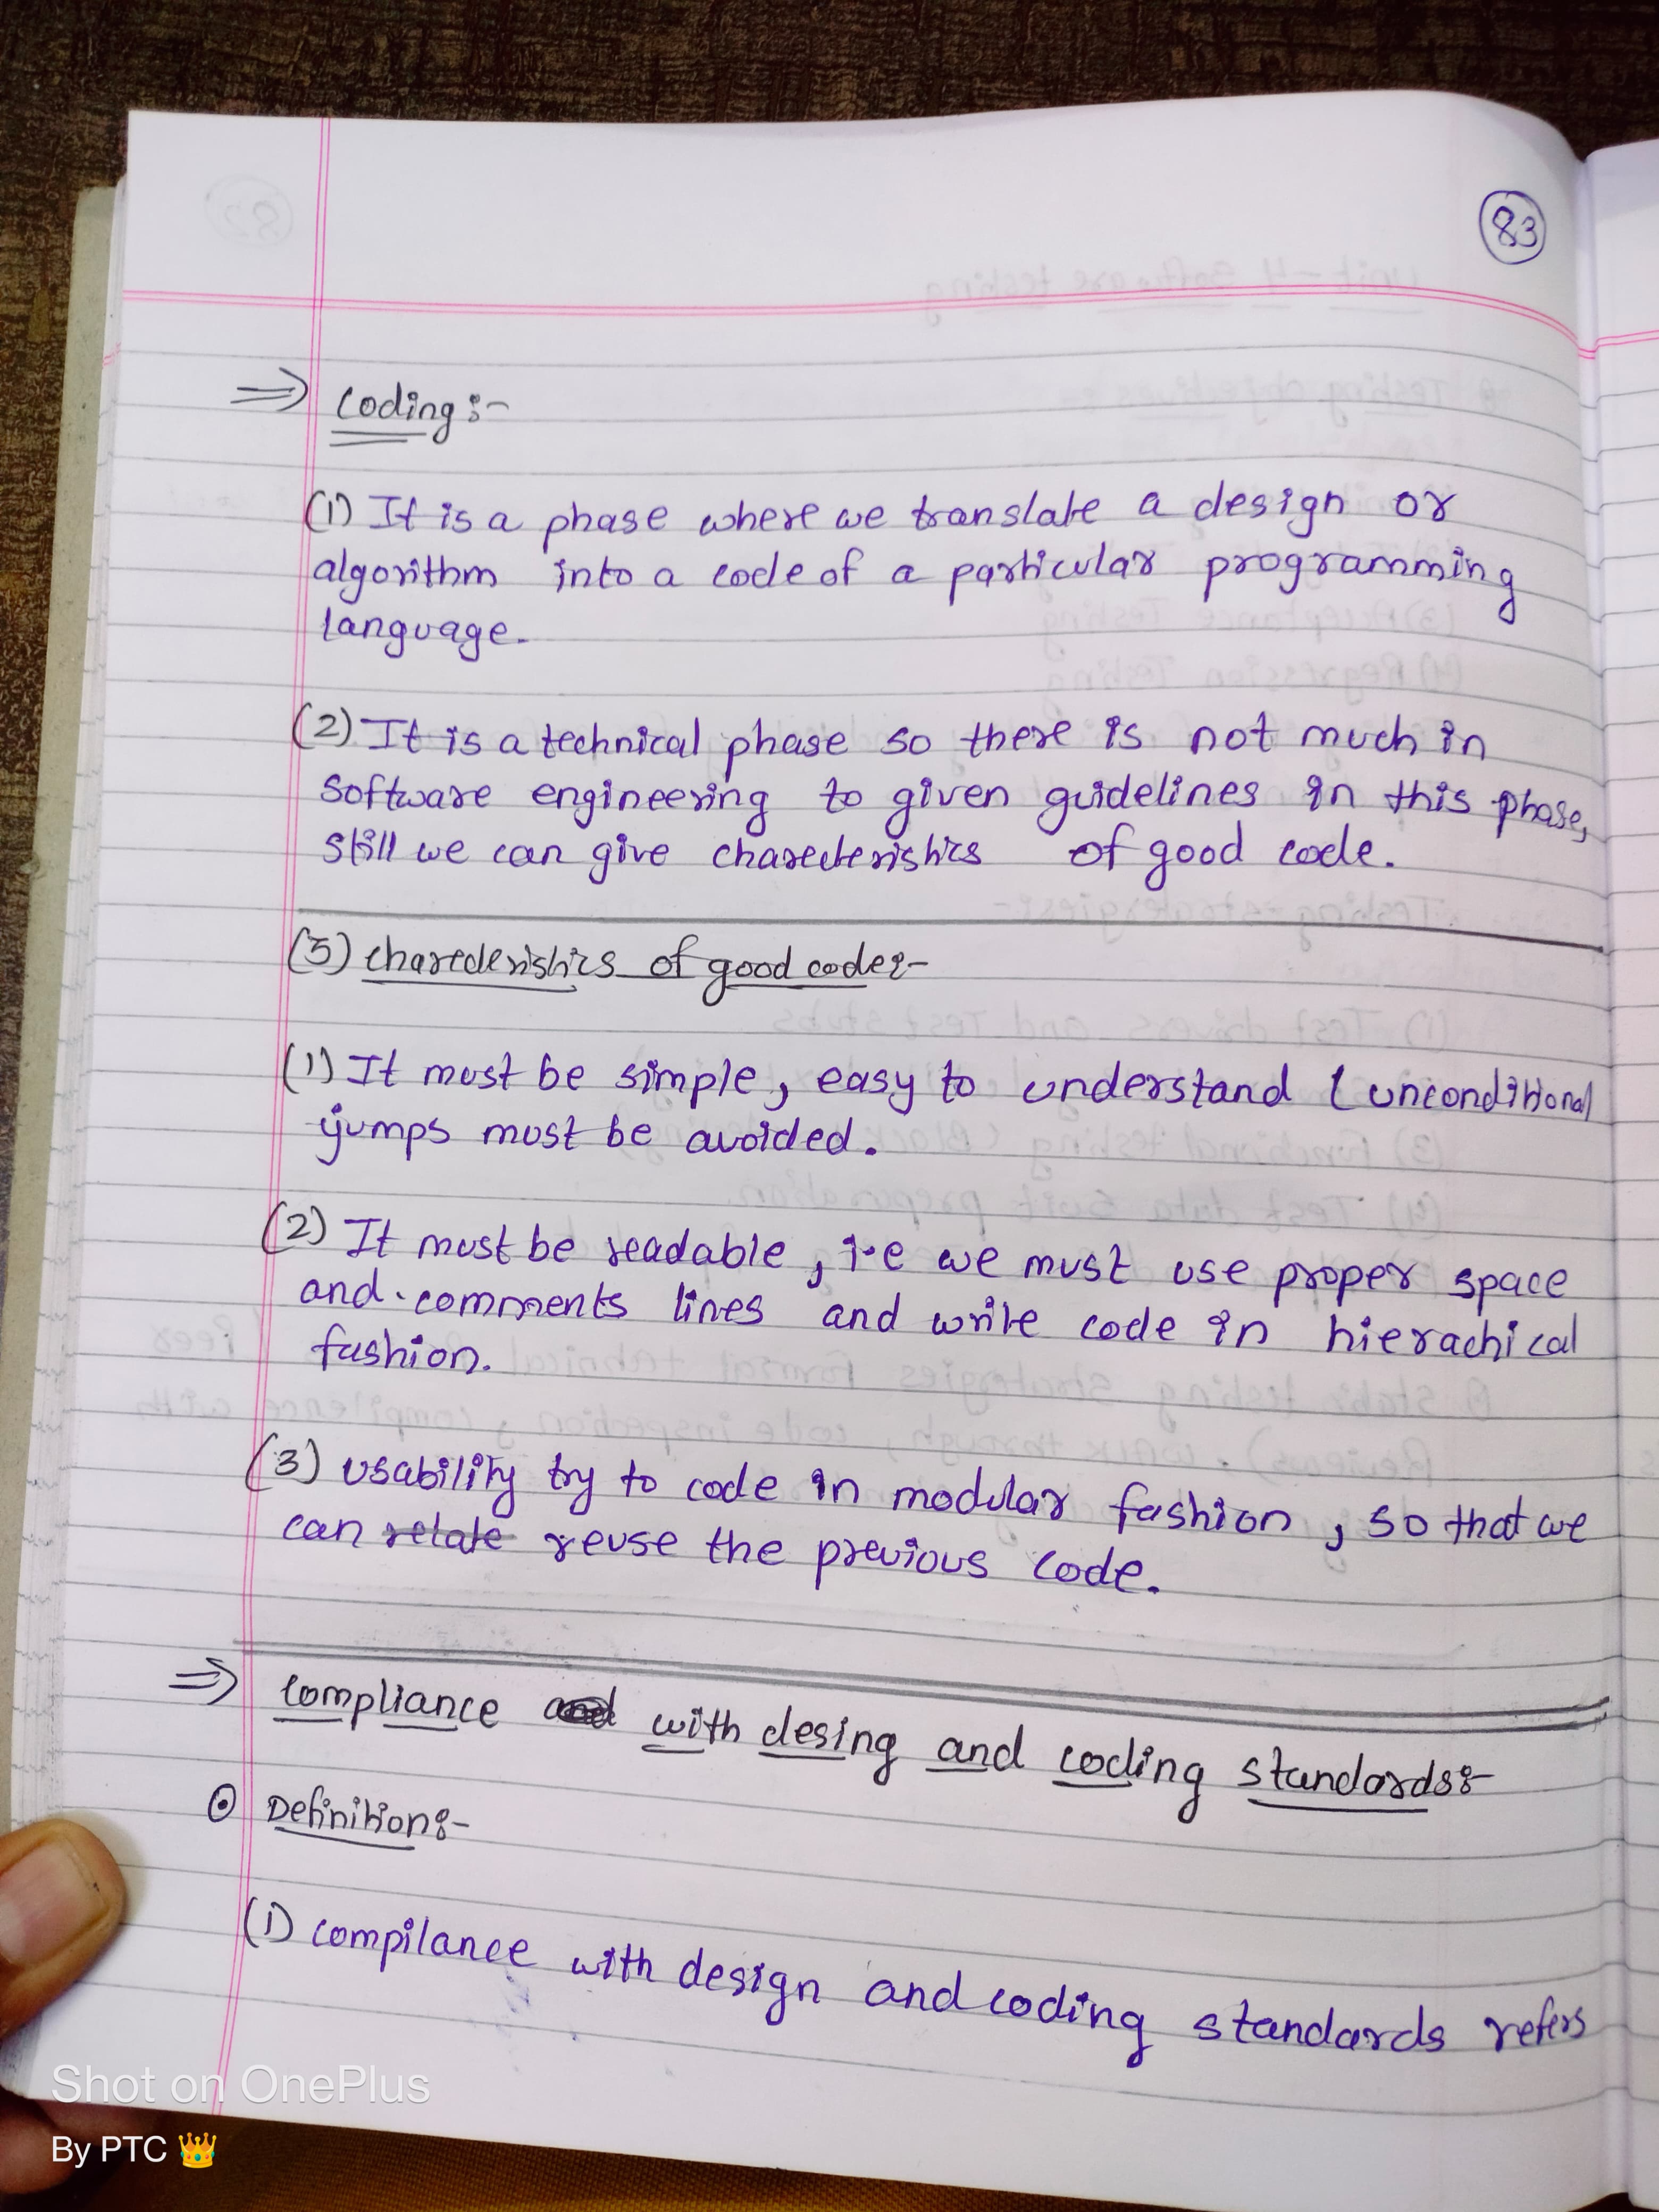 83
⇒ Coding :-
(1) It is a phase where we translate a design or
algorithm into a code of a particular programming
language.
(2) It is a technical phase so there is not much in
software engineering to given guidelines in this phase,
still we can give charecteristics of good code.
(3) charecteristics of good code:-
(1) It must be simple, easy to understand (unconditional
jumps must be avoided.
(2) It must be readable, i.e we must use proper space
and comments lines and write code in hierachical
fashion.
(3) usability try to code in modular fashion, so that we
can relate reuse the previous code.
⇒ Compliance and with desing and coding standards:-
⊙ Definition:-
(1) compilance with design and coding standards refers
Shot on OnePlus
By PTC 👑